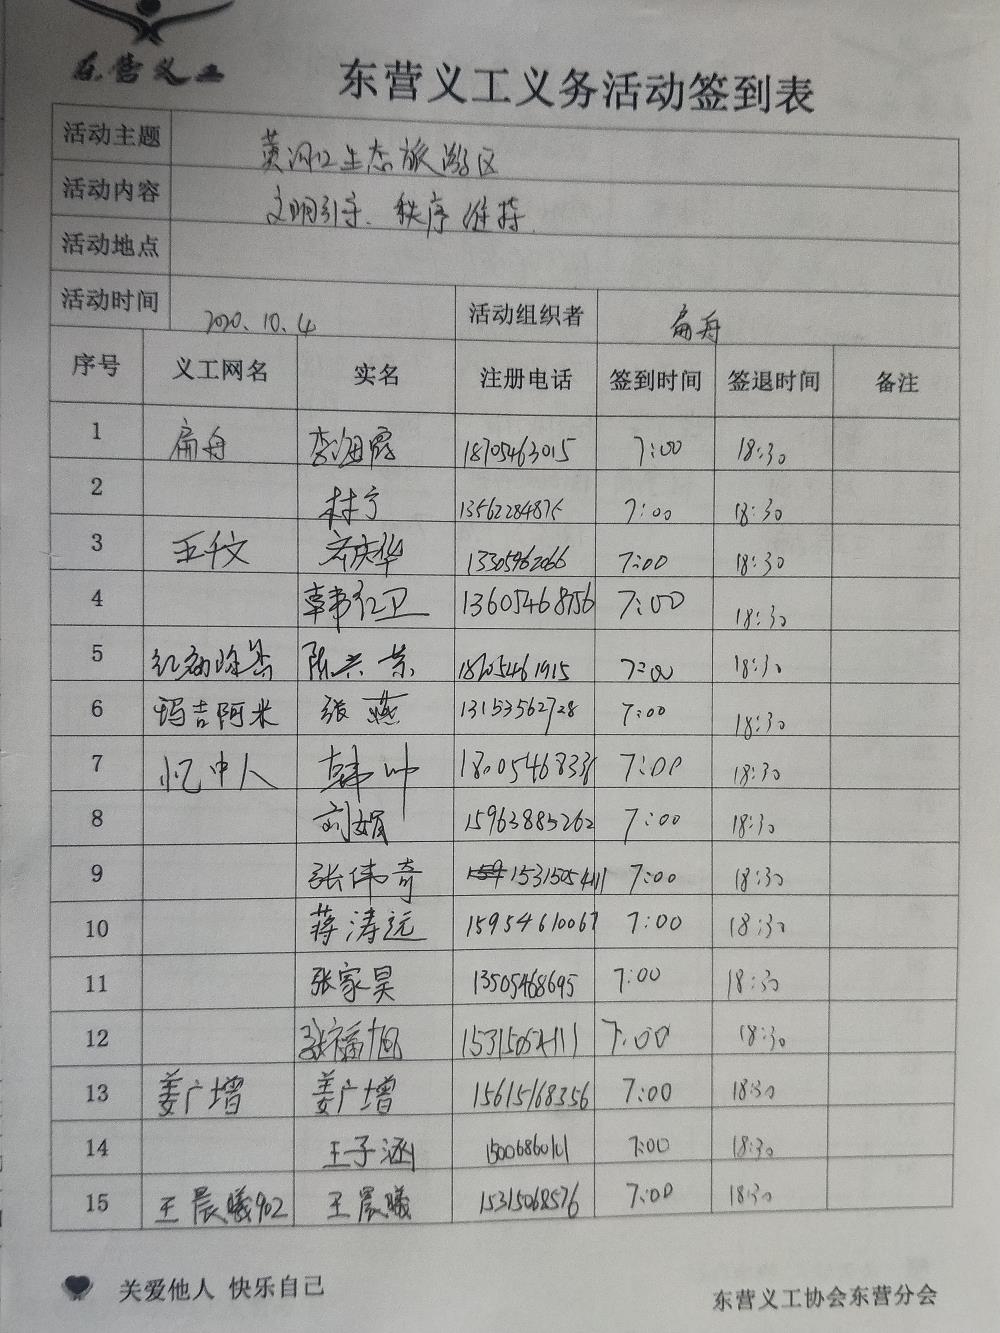 东营义工
东营义工义务活动签到表
活动主题 黄河口生态旅游区
活动内容 文明引导、秩序维持
活动地点
活动时间 2020.10.4 活动组织者 扁舟
序号 义工网名 实名 注册电话 签到时间 签退时间 备注
1 扁舟 李海霞 18705463015 7:00 18:30
2 林宁 7:00 18:30
3 13305462066 7:00 18:30
4 韩红卫 13605468756 7:00 18:30
5 陈兴荣 18705461915 7:00 18:30
6 玛吉阿米 张燕 13153562728 7:00 18:30
7 忆中人 韩帅 7:00 18:30
8 刘娟 15963885262 7:00 18:30
9 张伟奇 15315054111 7:00 18:30
10 蒋涛远 15954610067 7:00 18:30
11 张家昊 13505468695 7:00 18:30
12 张福旭 15315054111 7:00 18:30
13 姜广增 姜广增 15615168356 7:00 18:30
14 王子涵 7:00 18:30
15 王晨曦902 王晨曦 15315068576 7:00 18:30
关爱他人 快乐自己
东营义工协会东营分会